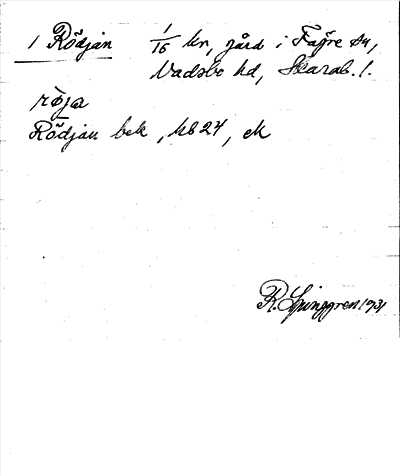 1 Rödjan 1/16 kn, gård i Fägre sn,
Vadsbo hd, Skarab. l.
röja
Rödjan bek, kb 24, ek
R. Ljunggren 1931